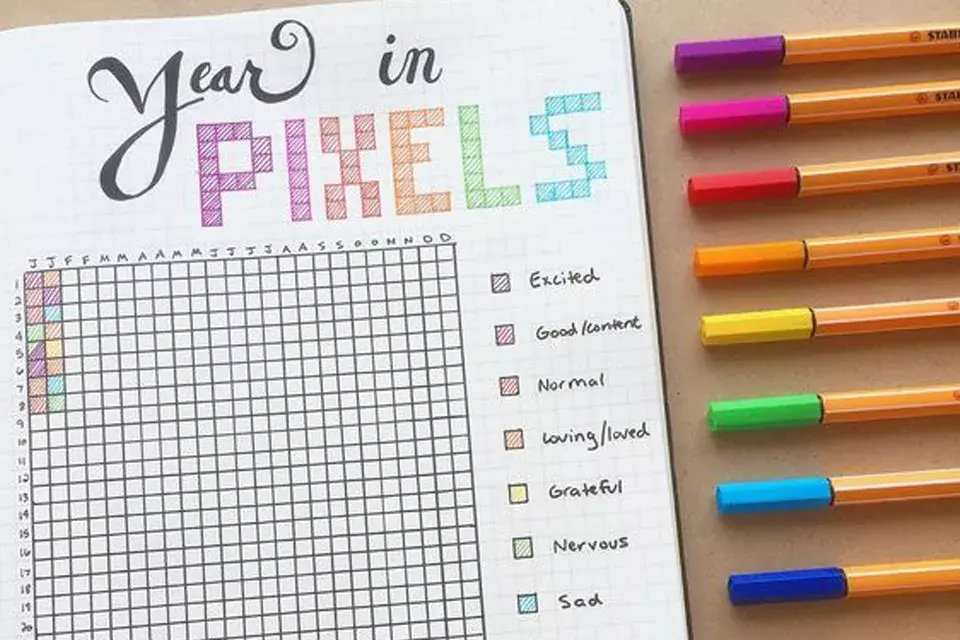 Year in
PIXELS
J J F F M M A A M M J J J J A A S S O O N N D D
1
2
3
4
5
6
7
8
9
10
11
12
13
14
15
16
17
18
19
20
Excited
Good/content
Normal
Loving/loved
Grateful
Nervous
Sad
STABI
STA
ST
S